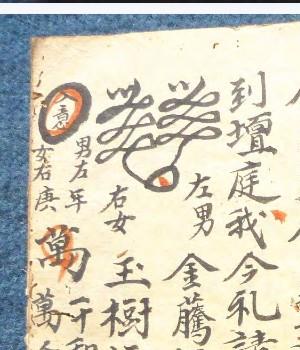 到壇庭我今礼請
左男 金騰
右女 玉樹
意
男左年 千
女右庚 萬
萬